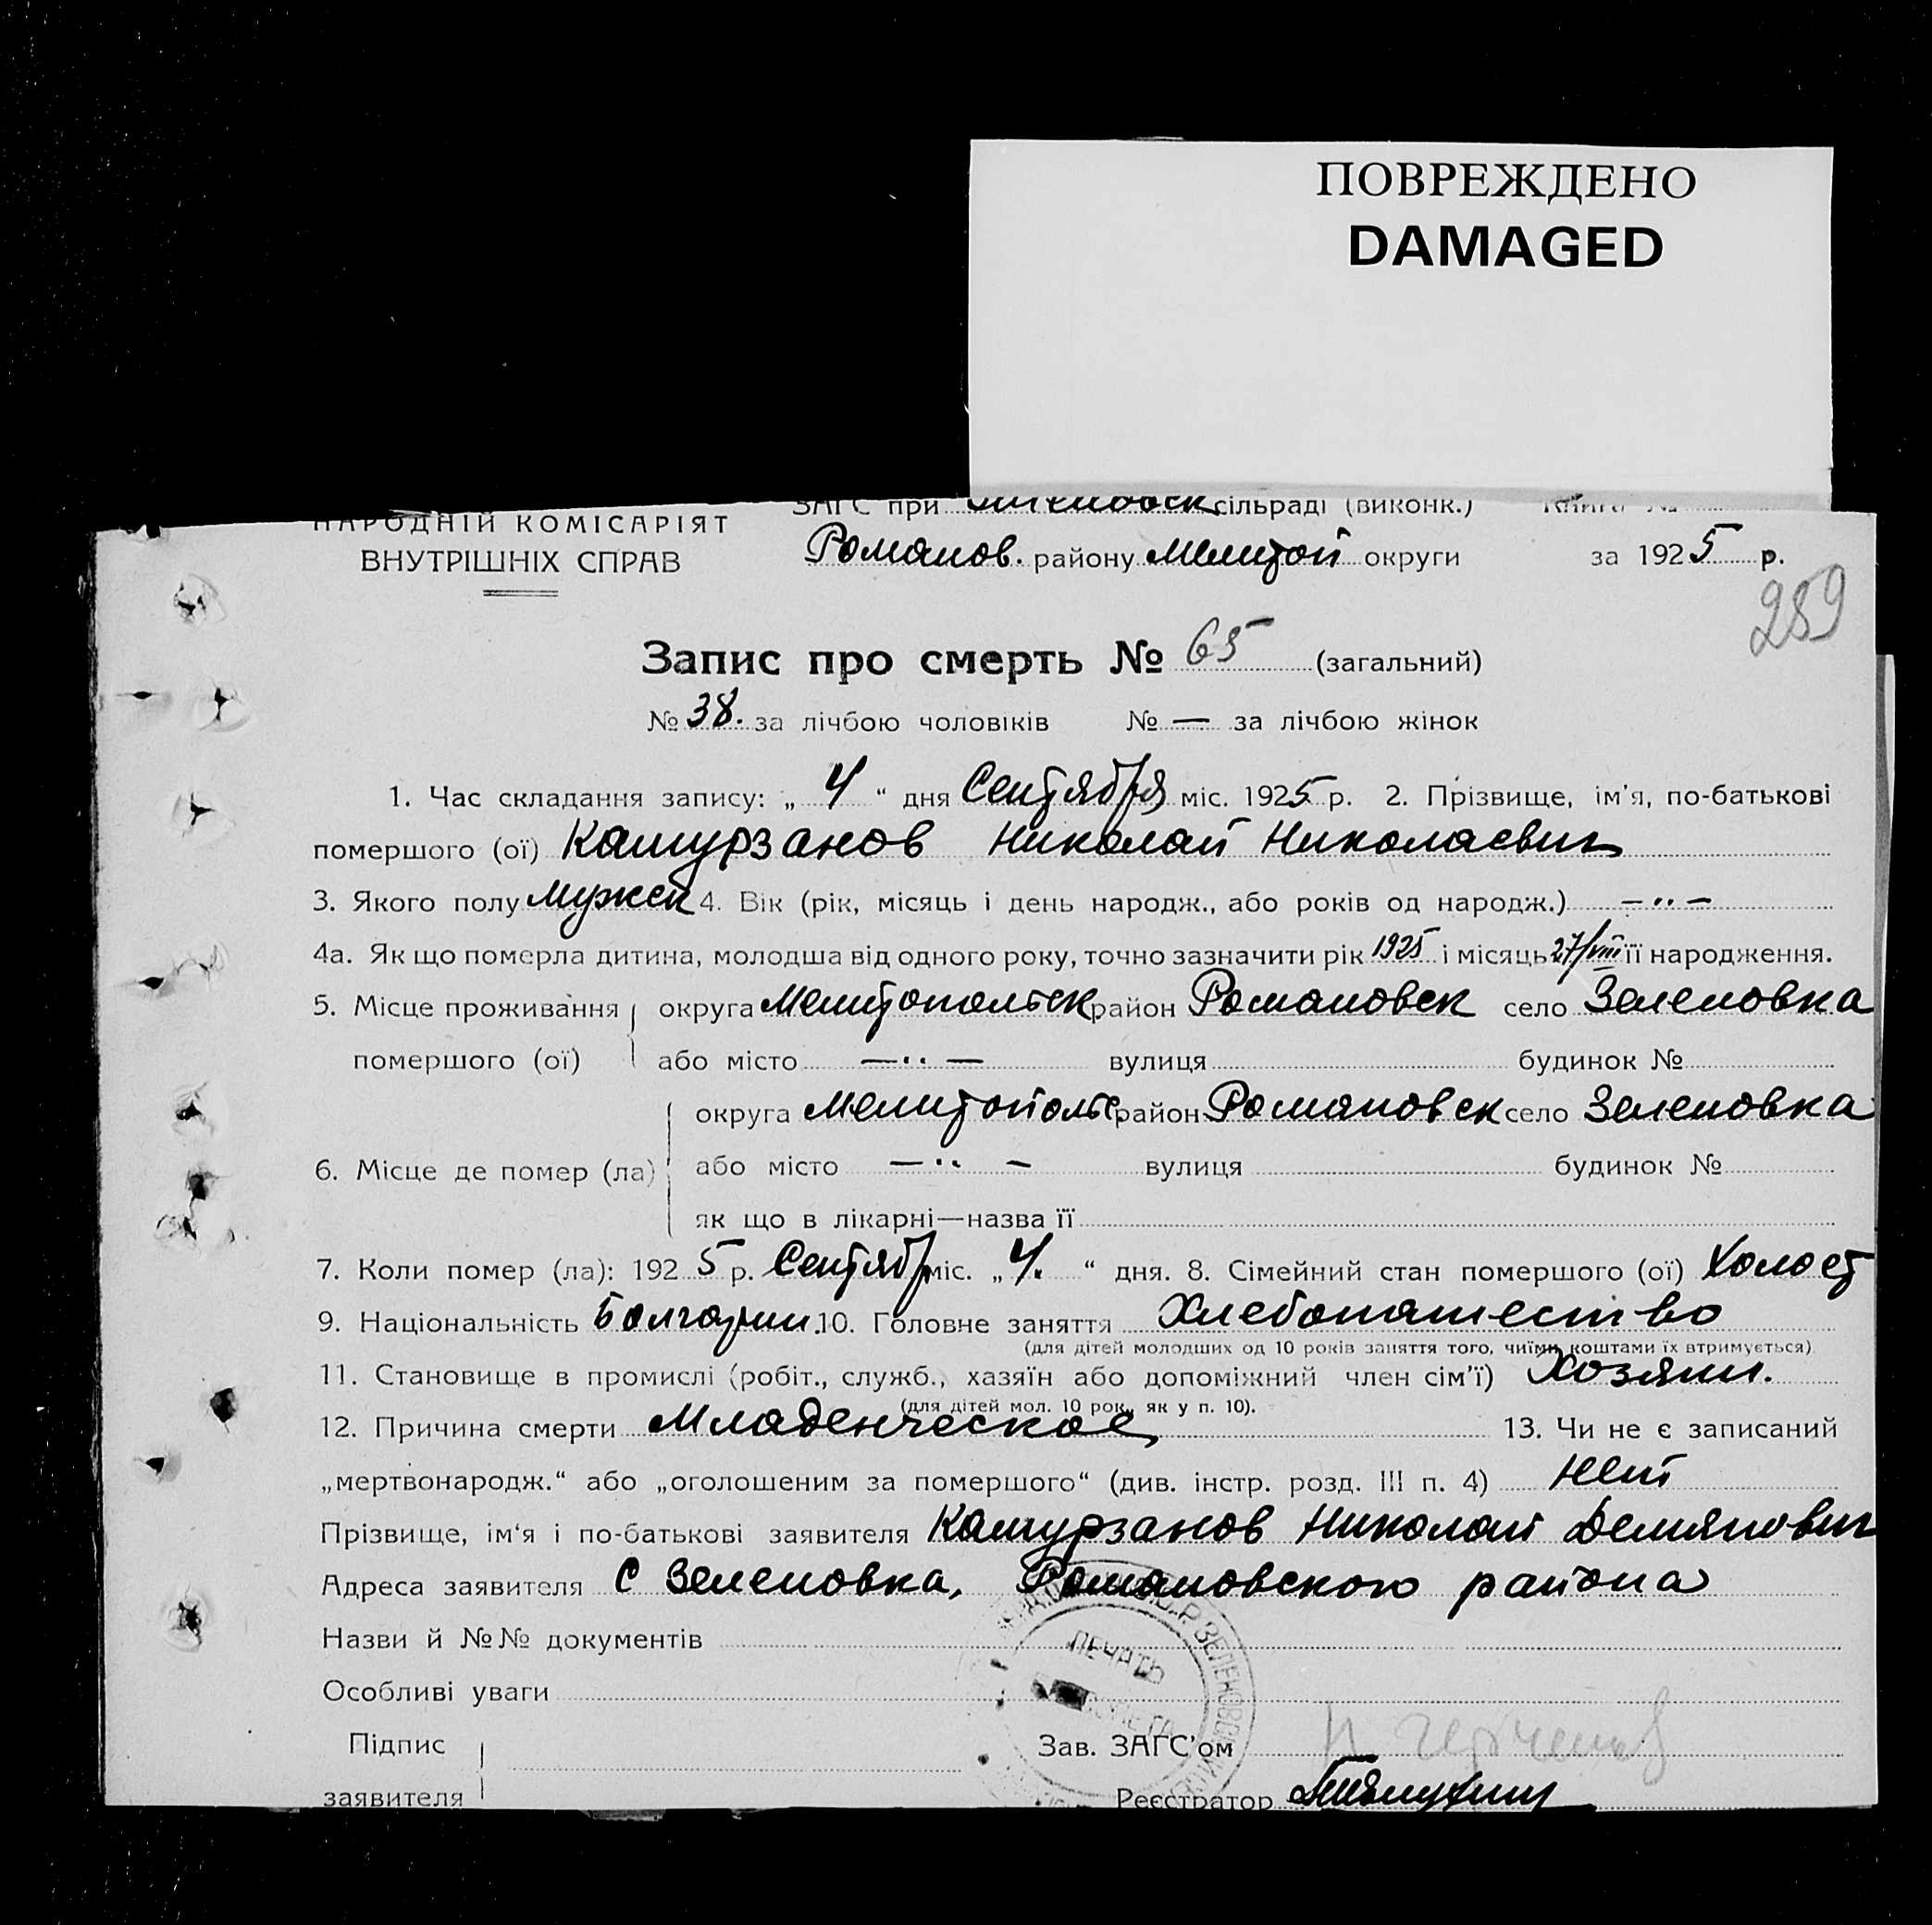 ПОВРЕЖДЕНО
DAMAGED
НАРОДНІЙ КОМІСАРІЯТ
ВНУТРІШНІХ СПРАВ
ЗАГС при сільраді (виконк.) Книга №
Романов. району Мелитоп округи за 1925 р.
289
Запис про смерть № 65 (загальний)
№ 38. за лічбою чоловіків № — за лічбою жінок
1. Час складання запису: „ 4 “ дня Сентября міс. 1925 р. 2. Прізвище, ім'я, по-батькові
помершого (ої) Кашурзанов Николай Николаевич
3. Якого полу мужск 4. Вік (рік, місяць і день народж., або років од народж.) — ·· —
4а. Як що померла дитина, молодша від одного року, точно зазначити рік 1925 і місяць 27/VIII її народження.
5. Місце проживання округа Мелитопольск район Романовск село Зеленовка
помершого (ої) або місто — ·· — вулиця будинок №
округа Мелитопольс район Романовск село Зеленовка
6. Місце де помер (ла) або місто — ·· — вулиця будинок №
як що в лікарні—назва її
7. Коли помер (ла): 1925 р. Сентябр міс. „ 4. “ дня. 8. Сімейний стан помершого (ої) Холост
9. Національність Болгарин. 10. Головне заняття Хлебопашество
(для дітей молодших од 10 років заняття того, чиїми коштами їх втримується)
11. Становище в промислі (робіт., служб., хазяїн або допоміжний член сім'ї) Хозяин.
(для дітей мол. 10 рок., як у п. 10).
12. Причина смерти Младенческое 13. Чи не є записаний
„мертвонародж.“ або „оголошеним за помершого“ (див. інстр. розд. III п. 4) Нет
Прізвище, ім'я і по-батькові заявителя Кашурзанов Николай Демянович
Адреса заявителя С Зеленовка, Романовского района
Назви й №№ документів
ПЕЧАТЬ
Особливі уваги
Підпис
заявителя
Зав. ЗАГС'ом
Реєстратор